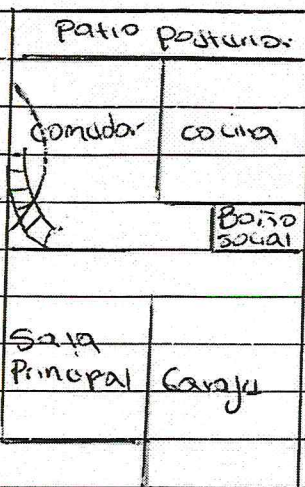 Patio Posturior
comudor cocina
Baño
social
Sala
Principal Garaju